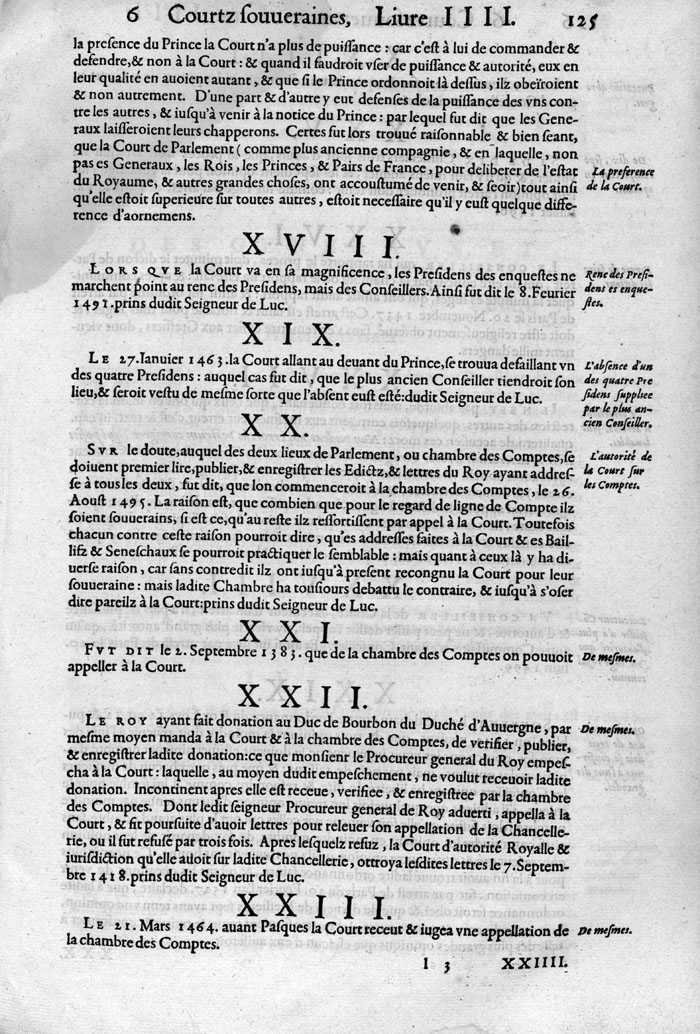 6 Courtz souueraines, Liure IIII. 125
la presence du Prince la Court n'a plus de puissance : car c'est à lui de commander &
defendre, & non à la Court : & quand il faudroit vser de puissance & autorité, eux en
leur qualité en auoient autant, & que si le Prince ordonnoit là dessus, ilz obeïroient
& non autrement. D'une part & d'autre y eut defenses de la puissance des vns con-
tre les autres, & iusqu'à venir à la notice du Prince : par lequel fut dit que les Gene-
raux laisseroient leurs chapperons. Certes fut lors trouué raisonnable & bien seant,
que la Court de Parlement ( comme plus ancienne compagnie, & en laquelle, non
pas es Generaux, les Rois, les Princes, & Pairs de France, pour deliberer de l'estat
du Royaume, & autres grandes choses, ont accoustumé de venir, & seoir) tout ainsi
qu'elle estoit superieure sur toutes autres, estoit necessaire qu'il y eust quelque diffe-
rence d'aornemens.
La preference
de la Court.
XVIII.
LORS QVE la Court va en sa magnificence, les Presidens des enquestes ne
marchent point au renc des Presidens, mais des Conseillers. Ainsi fut dit le 8. Feurier
1491. prins dudit Seigneur de Luc.
Renc des Presi-
dens es enque-
stes.
XIX.
LE 27. Ianuier 1463. la Court allant au deuant du Prince, se trouua defaillant vn
des quatre Presidens : auquel cas fut dit, que le plus ancien Conseiller tiendroit son
lieu, & seroit vestu de mesme sorte que l'absent eust esté: dudit Seigneur de Luc.
L'absence d'un
des quatre Pre
sidens suppliee
par le plus an-
cien Conseiller.
XX.
SVR le doute, auquel des deux lieux de Parlement, ou chambre des Comptes, se
doiuent premier lire, publier, & enregistrer les Edictz, & lettres du Roy ayant addres-
se à tous les deux, fut dit, que lon commenceroit à la chambre des Comptes, le 26.
Aoust 1495. La raison est, que combien que pour le regard de ligne de Compte ilz
soient souuerains, si est ce, qu'au reste ilz ressortissent par appel à la Court. Toutefois
chacun contre ceste raison pourroit dire, qu'es addresses faites à la Court & es Bail-
lifz & Seneschaux se pourroit practiquer le semblable : mais quant à ceux là y ha di-
uerse raison, car sans contredit ilz ont iusqu'à present recongnu la Court pour leur
souueraine : mais ladite Chambre ha tousiours debattu le contraire, & iusqu'à s'oser
dire pareilz à la Court: prins dudit Seigneur de Luc.
L'autorité de
la Court sur
les Comptes.
XXI.
FVT DIT le 2. Septembre 1383. que de la chambre des Comptes on pouuoit
appeller à la Court.
De mesmes.
XXII.
LE ROY ayant fait donation au Duc de Bourbon du Duché d'Auuergne, par
mesme moyen manda à la Court & à la chambre des Comptes, de verifier, publier,
& enregistrer ladite donation: ce que monsieur le Procureur general du Roy empes-
cha à la Court : laquelle, au moyen dudit empeschement, ne voulut receuoir ladite
donation. Incontinent apres elle est receue, verifiee, & enregistree par la chambre
des Comptes. Dont ledit seigneur Procureur general de Roy aduerti, appella à la
Court, & fit poursuite d'auoir lettres pour releuer son appellation de la Chancelle-
rie, ou il fut refusé par trois fois. Apres lesquelz refuz, la Court d'autorité Royalle &
iurisdiction qu'elle auoit sur ladite Chancellerie, ottroya lesdites lettres le 7. Septem-
bre 1418. prins dudit Seigneur de Luc.
De mesmes.
XXIII.
LE 21. Mars 1464. auant Pasques la Court receut & iugea vne appellation de
la chambre des Comptes.
De mesmes.
I 3 XXIIII.